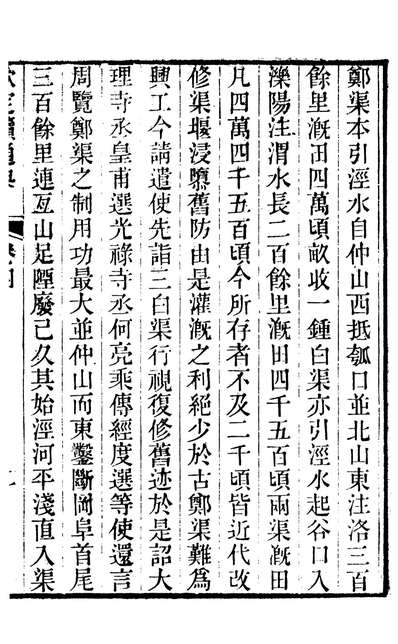 鄭渠本引涇水自仲山西抵瓠口並北山東注洛三百
餘里漑田四萬頃畝收一鍾白渠亦引涇水起谷口入
濼陽注渭水長二百餘里漑田四千五百頃兩渠漑田
凡四萬四千五百頃今所存者不及二千頃皆近代改
修渠堰浸隳舊防由是灌漑之利絕少於古鄭渠難爲
興工今請遣使先詣三白渠行視復修舊迹於是詔大
理寺丞皇甫選光祿寺丞何亮乘傳經度選等使還言
周覽鄭渠之制用功最大並仲山而東鑿斷岡阜首尾
三百餘里連亙山足陻廢已久其始涇河平淺直入渠
欽定續通典 卷四